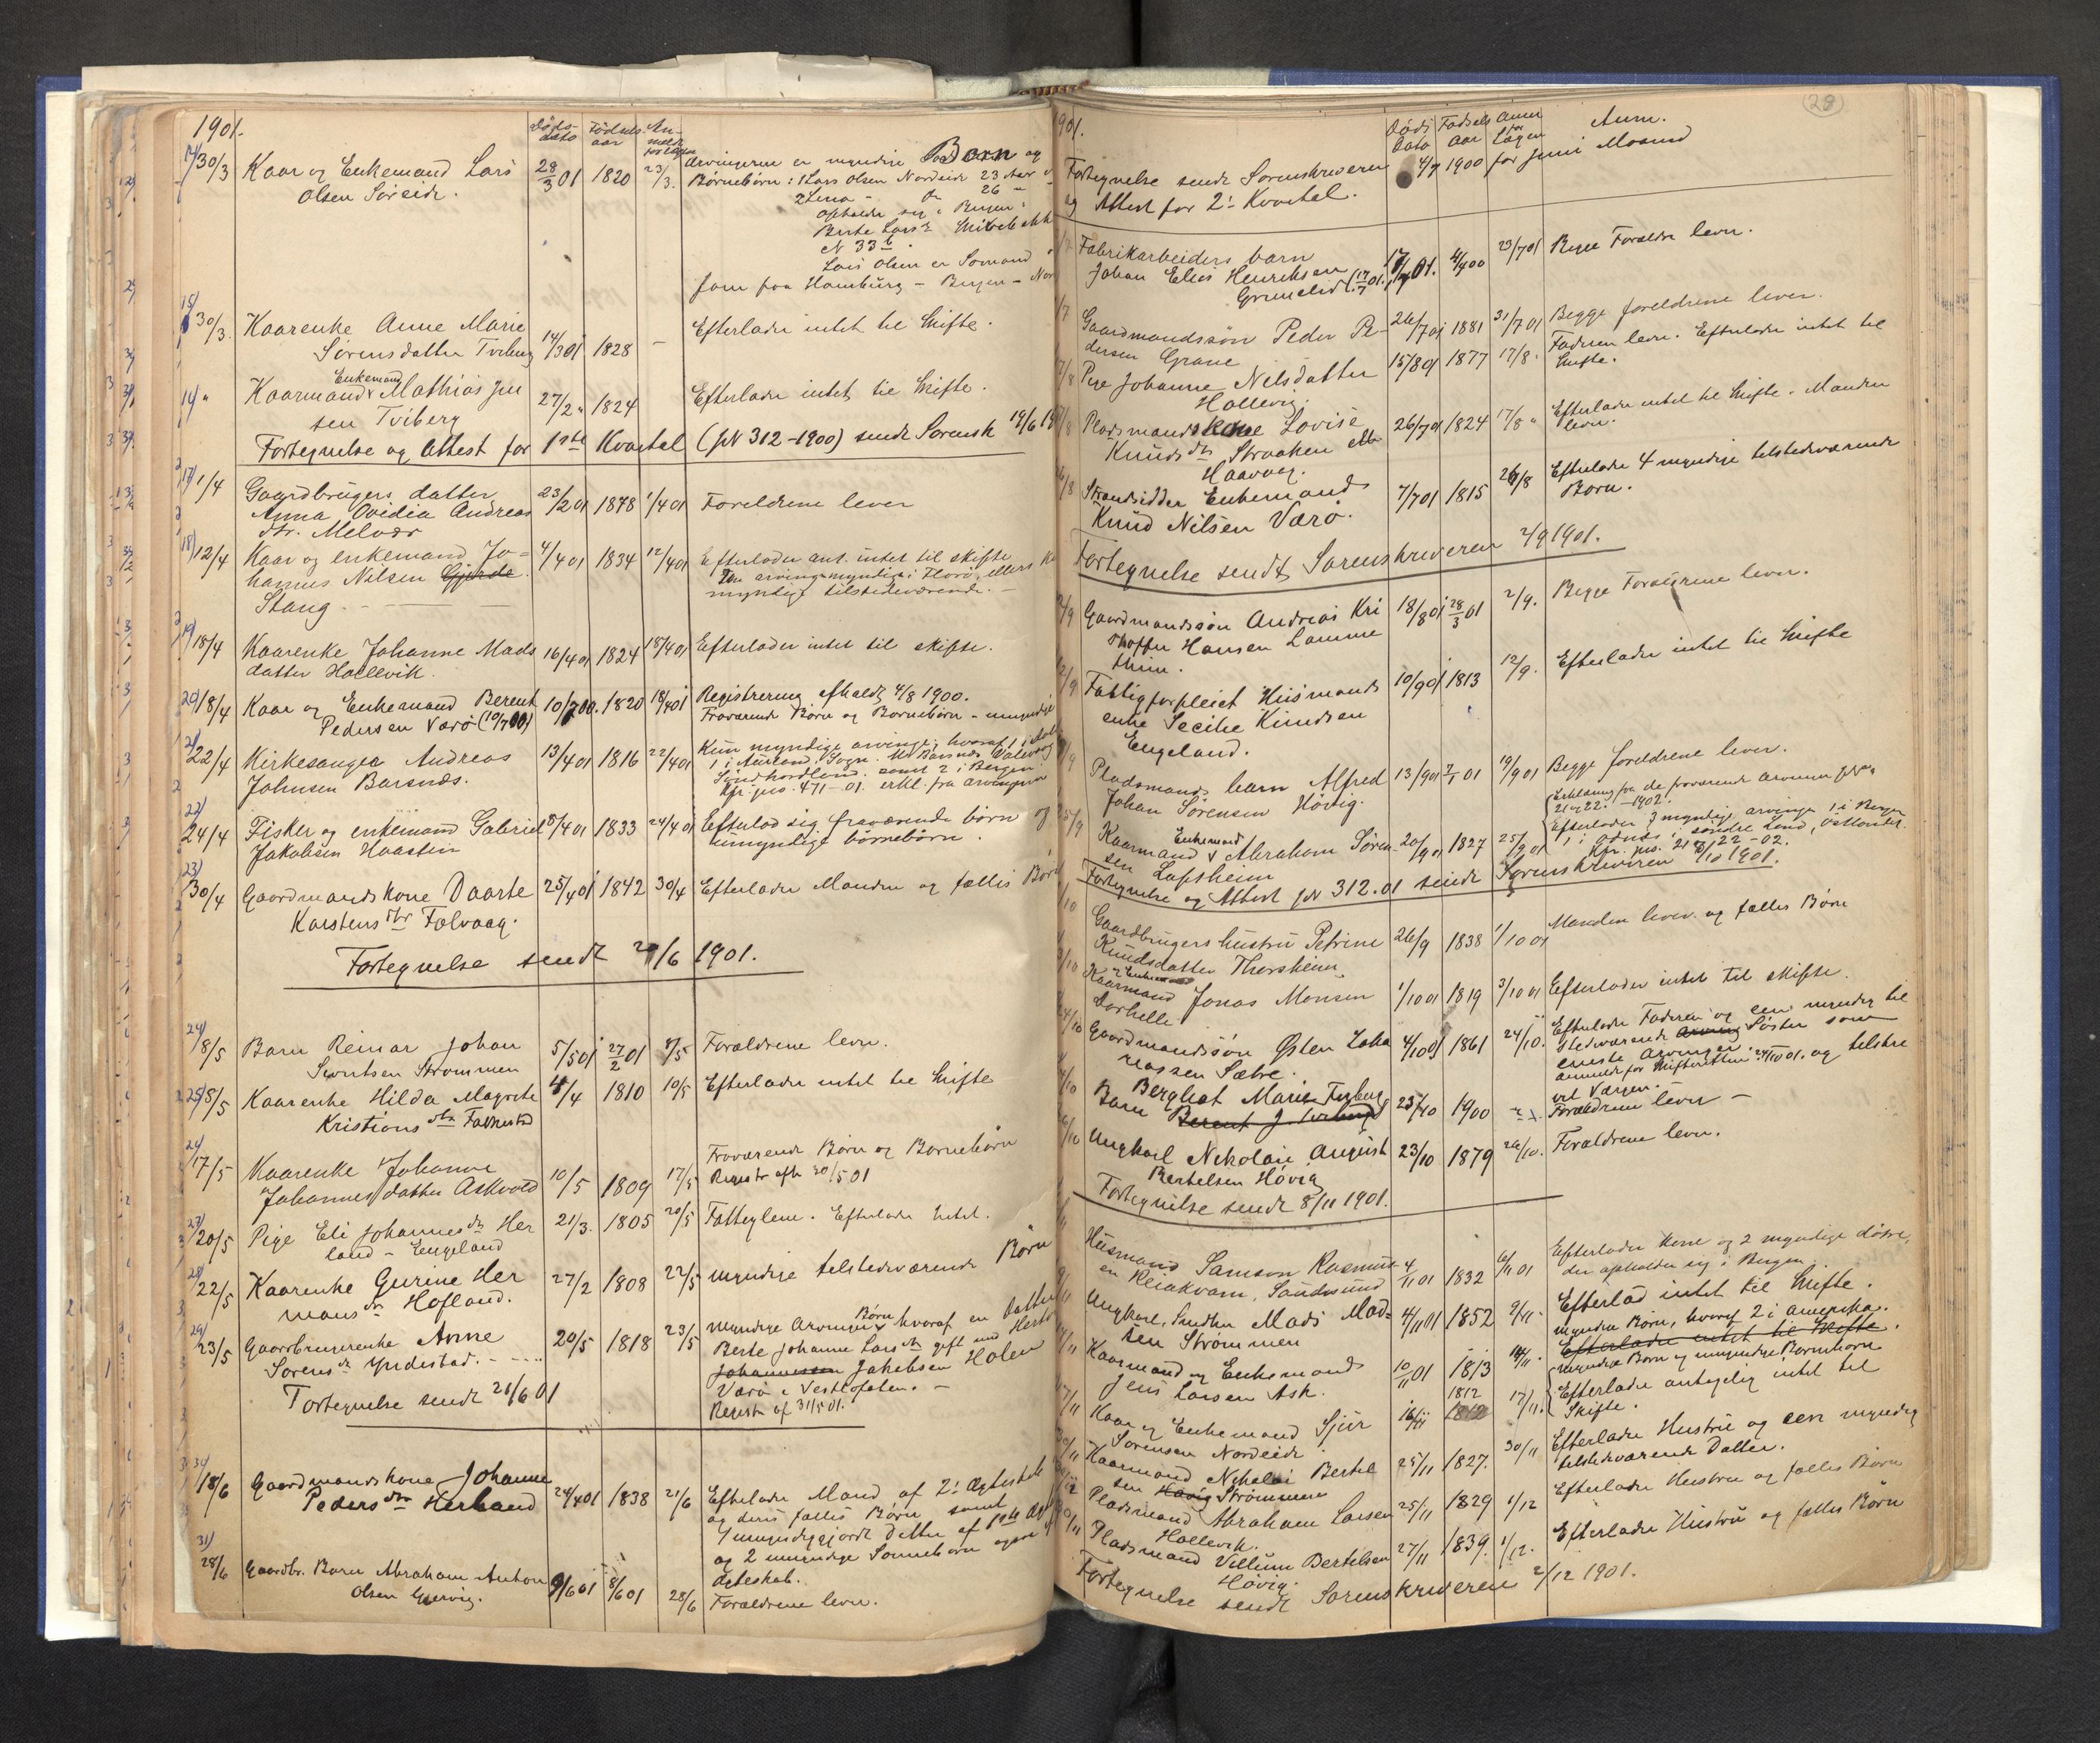 1901.
Døds-
dato
Fødsels
aar
An-
meldt
for Lagen
30/3 Kaar og Enkemand Lars 28/3 01 1820 23/3. Arvingerne er myndige Børn og
Olsen Søreide. Børnebørn: 1 Lars Olsen Nordeide 23 Aar
2 Lina - Do 26 "
opholde sig i Bergen
Berte Larsd.
N 33 b.
Lars Olsen er Sømand
fare paa Hamburg - Bergen - Nor
15) 30/3. Kaarenke Anne Marie 14/3 01 1828 - Efterlader intet til Skifte.
Sørensdatter Tviberg
16) " Kaarmand Enkemand Mathias Jen 27/2 " 1824 Efterlader intet til Skifte.
sen Tviberg
Fortegnelse og Attest for 1ste Kvartal (JN 312-1900) sendt Sorensk 19/6 19
17) 1/4 Gaardbrugers datter 23/2 01 1878 1/4 01 Foreldrene lever
Anna Ovidia Andreas
dtr. Melvær
18) 12/4 Kaar og enkemand Jo- 4/4 01 1834 12/4 01 Efterlader ant. intet til skifte
hannes Nilsen Gjerde. En arving myndig i Florø, ellers
Stang. - myndige tilstedeværende. -
19) 18/4 Kaarenke Johanne Mads 16/4 01 1824 18/4 01 Efterlader intet til skifte.
datter Hallevik.
20) 18/4 Kaar og Enkemand Berent 10/7 00. 1820 18/4 01 Registrering afholdt 4/8 1900.
Pedersen Værø (10/7 00) Fraværende Børn og Børnebørn - umyndige
21) 22/4 Kirkesanger Andreas 13/4 01 1816 22/4 01 Kun myndige arvinger, hvoraf 1 i
Johnsen Barsnæs. 1 i Aurland Sogn.
Søndhordland. samt 2 i Bergen.
Kfr. jns. 471-01. erkl. fra arvingerne
22) 24/4 Fisker og enkemand Gabriel 8/4 01 1833 24/4 01 Efterlod sig fraværende børn og
Jakobsen Haastein umyndige børnebørn.
23) 30/4 Gaardmandskone Daarte 25/4 01 1842 30/4 Efterlader Manden og fælles Børn
Karstensdtr Folvaag.
Fortegnelse sendt 21/6 1901.
24) 8/5 Barn Reinar Johan 5/5 01 27/2 01 8/5 Forældrene lever.
Sivertsen Strømmen
25) 8/5 Kaarenke Hilda Magrete 4/4 1810 10/5 Efterlader intet til Skifte
Kristiansdtr Falkestad
26) 17/5 Kaarenke Johanne 10/5 1809 17/5 Fraværende Børn og Børnebørn
Johannesdatter Askvold Registr afh 20/5 01
27) 20/5 Pige Eli Johannesdr Her 21/3. 1805 20/5 Fattiglem. Efterlader Intet.
land - Engeland
28) 22/5 Kaarenke Gurine Her 27/2 1808 22/5 Myndige tilstedeværende Børn
mansdr Hofland.
29) 23/5 Gaardbrugerenke Anne 20/5 1818 23/5 Myndige Arvinger Børn hvoraf en Datter
Sørensdr Yndestad. - Berte Johanne Larsdr gift med
Johannessen Jakobsen Holen
Værø i Vestlofoten. -
Registr af 31/5 01.
Fortegnelse sendt 21/6 01
30) 18/6 Gaardmandskone Johanne 24/4 01 1838 21/6 Efterlader Mand af 2. Ægteskab
Pedersdtr Herland og deres fælles Børn samt
1 umyndiggjort Datter af 1ste
og 2 umyndige Sønnebørn
Ægteskab.
31) 28/6 Gaardbr. Barn Abraham Anton 9/6 01 8/6 01 28/6 Forældrene lever.
Olsen Gjervig.
28
1901.
Døds
Dato
Fødsels
Aar
Anm
for
Lagen
Anm.
Fortegnelse sendt Sorenskriveren 4/7 1900 for Juni Maaned
og Attest for 2. Kvartal.
Fabrikarbeiders barn 17/7 01. 4/4 00 23/7 01 Begge Forældre lever.
Johan Elias Henriksen
Grimelid (17/7 01.)
Gaardmandssøn Peder Pe- 26/7 01 1881 31/7 01 Begge foreldrene lever.
dersen Grane
Pige Johanne Nilsdatter 15/8 01 1877 17/8. Faderen lever. Efterlader intet til
Hallevig. Skifte.
Pladsmandskone Lovise 26/7 01 1824 17/8 " Efterlader intet til Skifte. Manden
Knudsdr Straaken lever.
Haavaag.
Strandsidder Enkemand 7/7 01 1815 26/8 Efterlader 4 myndige tilstedeværende
Knud Nilsen Værø. Børn.
Fortegnelse sendt Sorenskriveren 2/9 1901.
Gaardmandssøn Andreas Kri 18/8 01 28/3 01 2/9. Begge Forældrene lever.
stoffer Hansen Lamme
thun.
Fattigforpleiet Husmands 10/9 01 1813 12/9. Efterlader intet til Skifte
enke Secilie Knudsen
Engeland.
Pladsmands barn Alfred 13/9 01 2/1 01 19/9 01 Begge foreldrene lever.
Johan Sørensen Høvig.
Erklæring fra de fraværende arvinger
21 og 22. - 1902.
Kaarmand Enkemand Abraham Søren 20/9 01 1827 25/9 01 Efterlader 3 myndige arvinger 1 i Bergen
sen Loftheim 1 i Odnæs i søndre Land,
Kfr. jns. 21 & 22-02.
Fortegnelse og Attest JN 312.01 sendt Sorenskriveren 8/10 1901.
Gaardbrugers hustru Petrine 26/9 1838 1/10 01 Manden lever og fælles Børn
Knudsdatter Thorsheim
Kaarmand Enkemand Jonas Monsen 1/10 01 1819 3/10 01 Efterlader intet til skifte.
Dørhelle
Gaardmandssøn Østen Zaka 4/10 01 1861 24/10. Efterlader Faderen og een myndig til
riassen Sætre. stedværende Arving Søster som
eneste Arvinger.
anmeldt for Skifteretten 24/10 01. og tilstre
vet Værgen.
Bergliot Marie Tviberg
Barn Berent J. Tviberg 23/10 1900 Forældrene lever -
Ungkarl Nikolai August 23/10 1879 26/10. Forældrene lever.
Bertelsen Høvig
Fortegnelse sendt 8/11 1901.
Husmand Samson Rasmus 4/11 01 1832 6/11 01 Efterlader Kone og 2 myndige døtre,
en Kleiakvam, Sandesund der opholder sig i Bergen
Ungkarl, Smeden Mads Mad- 4/11 01 1852 9/11. Efterlod intet til Skifte.
sen Strømmen
Myndige Børn, hvoraf 2 i Amerika.
Kaarmand og Enkemand 10/11 01 1813 14/11 Efterlader intet til Skifte.
Jens Larsen Ask. Myndige Børn og umyndige Børnebørn
Kaar og Enkemand Sjur 16/11 1812 17/11. Efterlader antagelig intet til
Sørensen Nordeide Skifte.
Kaarmand Nikolai Bertel 25/11 1827. 30/11 Efterlader Hustru og een myndig
sen Høvig Strømmen tilstedværende Datter.
Pladsmand Abraham Larsen 25/11 1829 1/12 Efterlader Hustru og fælles Børn
Hallevik.
Pladsmand Villum Bertelsen 27/11 1839 1/12. Efterlader Hustru og fælles Børn
Høvig.
Fortegnelse sendt Sorenskriveren 2/12 1901.